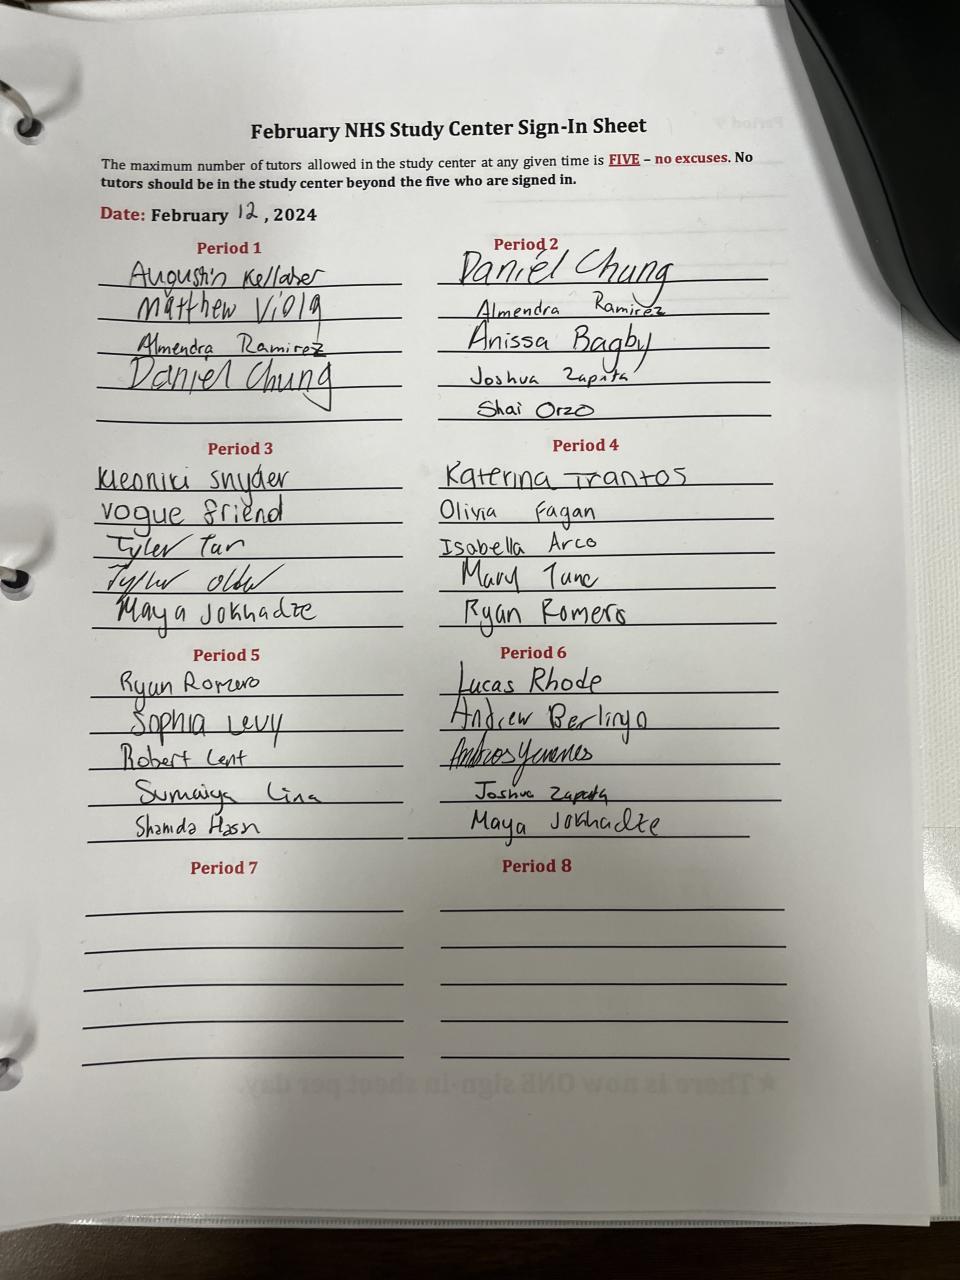 February NHS Study Center Sign-In Sheet
The maximum number of tutors allowed in the study center at any given time is FIVE – no excuses. No
tutors should be in the study center beyond the five who are signed in.
Date: February 12, 2024
Period 1
Augustin Kellaher
Matthew Viola
Almendra Ramirez
Daniel Chung
Period 2
Daniel Chung
Almendra Ramirez
Anissa Bagby
Joshua Zapata
Shai Orzo
Period 3
Kleoniki Snyder
Vogue Friend
Tyler Tan
Tyler
Maya Jokhadze
Period 4
Katerina Trantos
Olivia Fagan
Isabella Arco
Mary Tunc
Ryan Romero
Period 5
Ryan Romero
Sophia Levy
Robert Lent
Sumaiya Lina
Shamida Hasn
Period 6
Lucas Rhode
Andrew Berlingo
Joshua Zapata
Maya Jokhadze
Period 7
Period 8
★There is now ONE sign-in sheet per day.